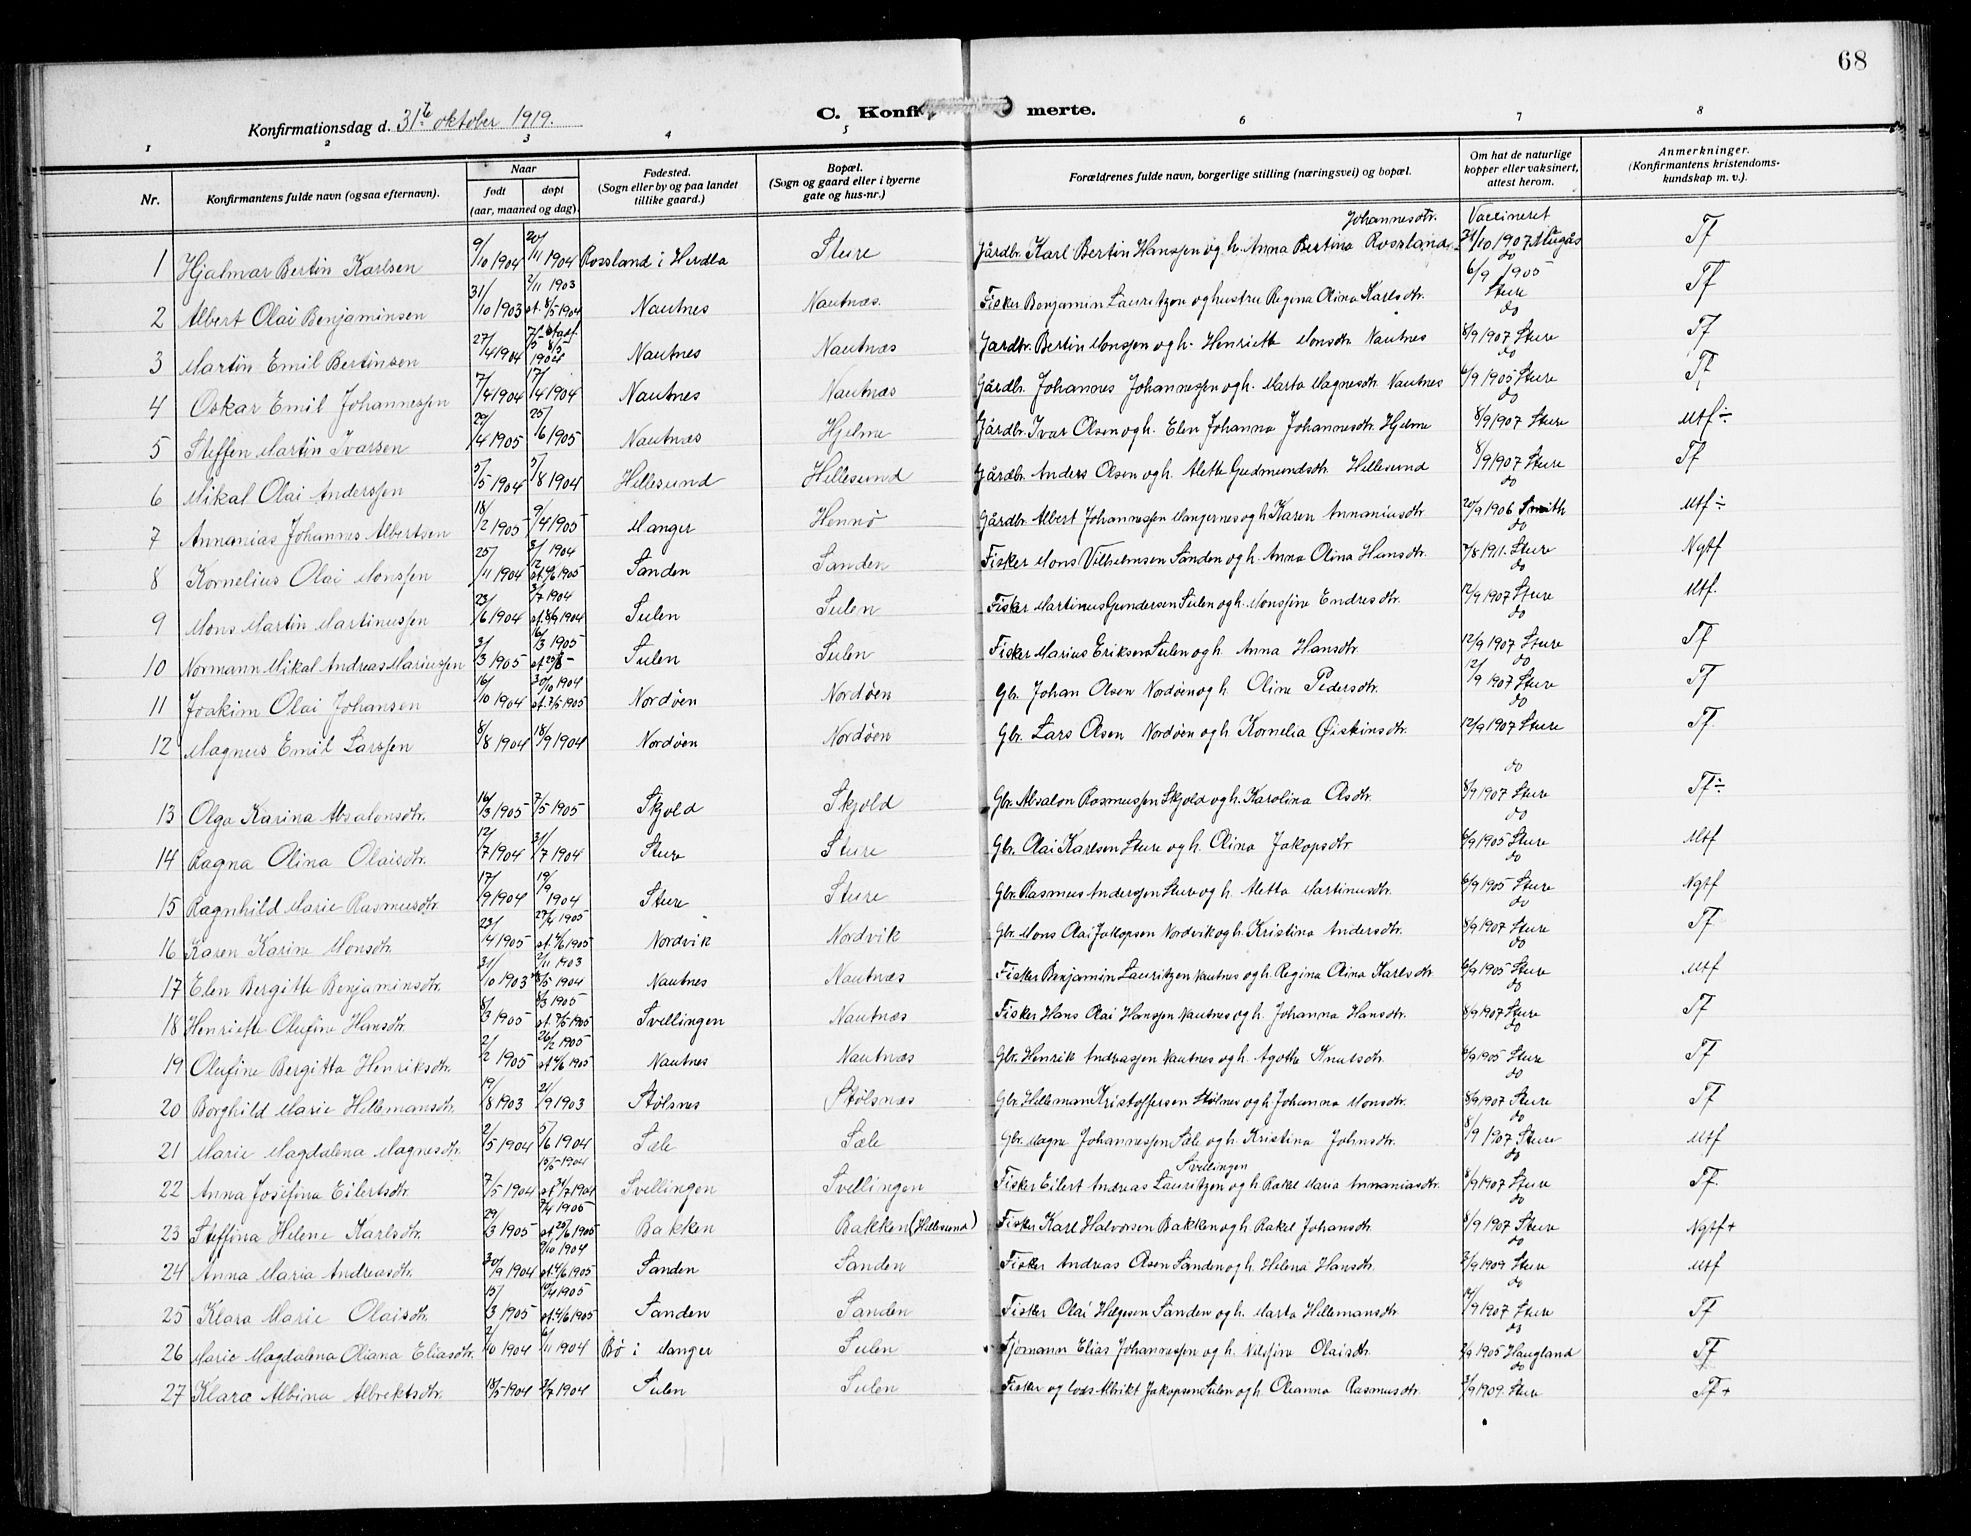 68
Konfirmationsdag d. 31te oktober 1919.
C. Konfir merte.
1 2 3 4 5 6 7 8
Nr. Konfirmantens fulde navn (ogsaa efternavn). Naar født døpt (aar, maaned og dag). Fødested. (Sogn eller by og paa landet tillike gaard.) Bopæl. (Sogn og gaard eller i byerne gate og hus-nr.) Forældrenes fulde navn, borgerlige stilling (næringsvei) og bopæl. Om hat de naturlige kopper eller vaksinert, attest herom. Anmerkninger. (Konfirmantens kristendoms-kundskap m. v.).
1 Hjalmar Bertin Karlsen 9/10 1904 20/11 1904 Rossland i Herdla Sture Gårdbr. Karl Bertin Hanssen og h. Anna Bertina Johannesdtr. Rossland Vaccineret 31/10 1907 Tf
2 Albert Olai Benjaminsen 31/10 1903 2/11 1903 st. 8/5 1904 Nautnes Nautnæs. Fisker Benjamin Lauritzen og hustru Regina Olina Karlsdtr. do 6/9 1905 Sture Tf
3 Martin Emil Bertinsen 27/4 1904 Nautnes Nautnæs Gardbr. Bertin Monssen og h. Henriette Monsdtr. Nautnes do 8/9 1907 Sture Tf
4 Oskar Emil Johannessen 7/4 1904 17/4 1904 Nautnes Nautnæs Gårdbr. Johannes Johannessen og h. Marta Magnesdtr. Nautnes do 6/9 1905 Sture Tf
5 Steffen Martin Ivarsen 29/4 1905 25/6 1905 Nautnæs Hjelme Gårdbr. Ivar Olsen og h. Elen Johanna Johannesdtr. Hjelme do 8/9 1907 Sture Mtf÷
6 Mikal Olai Anderssen 5/5 1904 5/8 1904 Hellesund Hellesund Gårdbr. Anders Olsen og h. Alette Gudmundsdtr. Hellesund 8/9 1907 Sture Tf
7 Annanias Johannes Albertsen 18/2 1905 9/4 1905 Manger Hennø Gårdbr. Albert Johannessen Mangernes og h. Karen Annaniasdtr. do 20/9 1906 Smith Mtf÷
8 Kornelius Olai Monssen 25/11 1904 8/12 1904 st. 4/6 1905 Sanden Sanden Fisker Mons Vilhelmsen Sanden og h. Anna Olina Hansdtr. do 7/8 1911. Sture Ngtf
9 Mons Martin Martinussen 23/6 1904 3/7 1904 Sulen Sulen Fisker Martinus Gundersen Sulen og h. Monsine Endresdtr. do 12/9 1907 Sture Mtf.
10 Normann Mikal Andreas Mariussen 3/3 1905 16/3 1905 Sulen Sulen Fisker Marius Eriksen Sulen og h. Anna Hansdtr. do 12/9 1907 Sture Tf
11 Joakim Olai Johansen 16/10 1904 30/10 1904 Nordøen Nordøen Gbr. Johan Olsen Nordøen og h. Oline Pedersdtr. do 12/9 1907 Sture Tf
12 Magnus Emil Larssen 8/8 1904 18/9 1904 Nordøen Nordøen Gbr. Lars Olsen Nordøen og h. Kornelia Øiskinsdtr. do 12/9 1907 Sture Tf
13 Olga Karina Absalonsdtr. 16/3 1905 7/5 1905 Skjold Skjold Gbr. Absalon Rasmussen Skjold og h. Karolina Olsdtr. do 8/9 1907 Sture Tf÷
14 Ragna Olina Olaisdtr. 12/7 1904 31/7 1904 Sture Sture Gbr. Olai Karlsen Sture og h. Olina Jakopsdtr. do 6/9 1905 Sture Mtf
15 Ragnhild Marie Rasmusdtr. 17/9 1904 19/9 1904 Sture Sture Gbr. Rasmus Anderssen Sture og h. Metta Martinusdtr. do 6/9 1905 Sture Ngtf
16 Karen Karine Monsdtr. 23/4 1905 27/4 1905 st. 4/6 1905 Nordvik Nordvik Gbr. Mons Olai Jakopsen Nordvik og h. Kristina Andersdtr. do 8/9 1907 Sture Tf
17 Elen Bergitte Benjaminsdtr. 31/10 1903 2/11 1903 8/5 1904 Nautnes Nautnæs Fisker Benjamin Lauritzen Nautnes og h. Regina Olina Karlsdtr. do 6/9 1905 Sture Mtf
18 Henriette Olufine Hansdtr. 8/3 1905 8/3 1905 Svellingen Nautnæs Fisker Hans Olai Hanssen Nautnes og h. Johanna Hansdtr. do 8/9 1907 Sture Tf
19 Olufine Bergitta Henriksdtr. 2/2 1905 26/2 1905 st. 4/6 1905 Nautnes Nautnæs Gbr. Henrik Andreassen Nautnes og h. Agathe Knutsdtr. do 6/9 1905 Sture Tf
20 Borghild Marie Hellemansdtr. 19/8 1903 21/9 1903 Stølsnes Stølsnæs Gbr. Helleman Kristoffersen Stølnes og h. Johanna Monsdtr. do 8/9 1907 Sture Tf
21 Marie Magdalena Magnesdtr. 2/5 1904 5/6 1904 Sæle Sæle Gbr. Magne Johannessen Sæle og h. Kristina Johnsdtr. do 8/9 1907 Sture Mtf
22 Anna Josefina Eilertsdtr. 7/5 1904 15/5 1904 Svellingen Svellingen Fisker Eilert Andreas Lauritzen Svellingen og h. Rakel Maria Annaniasdtr. do 8/9 1907 Sture Tf
23 Steffina Helene Karlsdtr. 29/3 1905 Bakken Bakken (Hellesund) Fisker Karl Halvorsen Bakken og h. Rakel Johansdtr. do 8/9 1907 Sture Ngtf+
24 Anna Maria Andreasdtr. 30/9 1904 9/10 1904 st. 4/6 1905 Sanden Sanden Fisker Andreas Olsen Sanden og h. Helena Hansdtr. do 3/9 1909 Sture Mtf
25 Klara Marie Olaisdtr. 15/3 1905 st. 4/6 1905 Sanden Sanden Fisker Olai Helgesen Sanden og h. Marta Hellemansdtr. do 1907 Sture Tf
26 Marie Magdalena Oliana Eliasdtr. 2/10 1904 6/11 1904 Bø i Manger Sulen Sjømann Elias Johannessen og h. Nilsfine Olaisdtr. do 1905 Haugland Tf
27 Klara Albina Albrektsdtr. 18/5 1904 3/7 1904 Sulen Sulen Fisker og lods Albrikt Jakopsen Sulen og h. Oleanna Rasmusdtr. do 3/9 1909. Sture Tf+